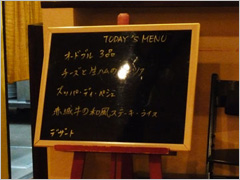 TODAY'S MENU
オードブル 3品
チーズと生ハムの
スッパ・ディ・ペッシェ
赤城牛の和風ステーキ・ライス
デザート